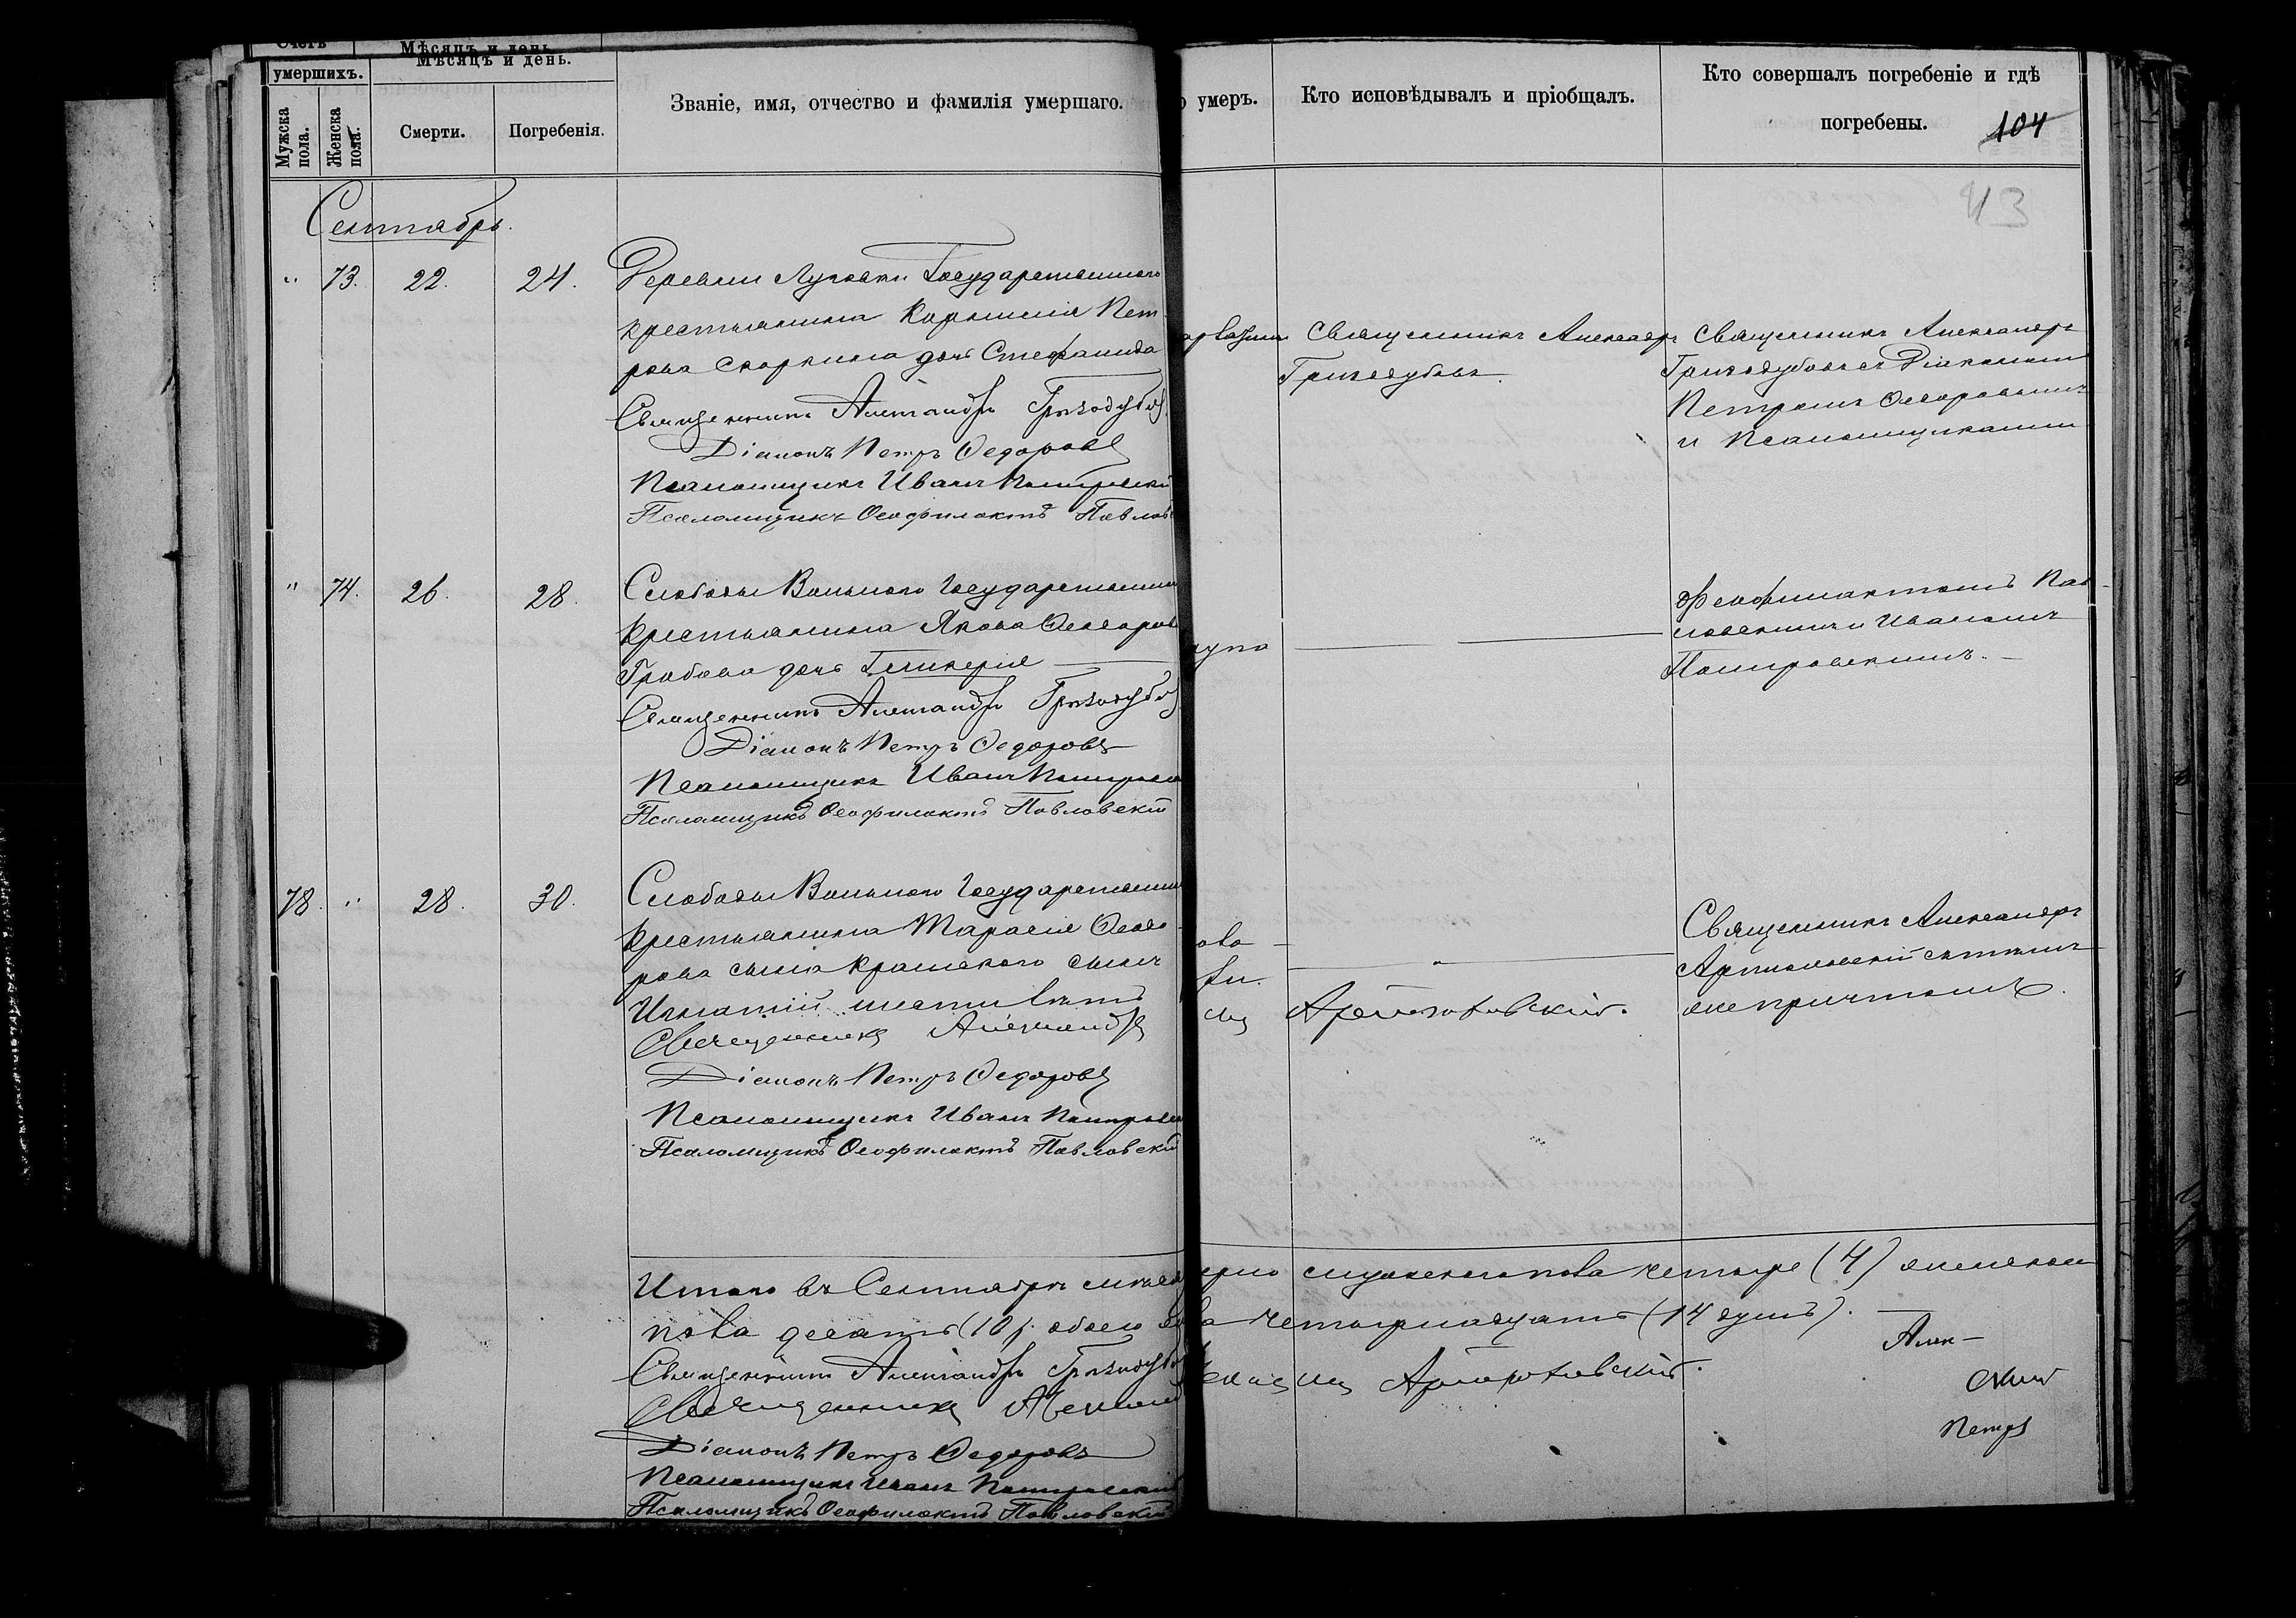 Счетъ
умершихъ.
Мужска пола.
Женска пола.
Мѣсяцъ и день.
Мѣсяцъ и день.
Смерти.
Погребенія.
Званіе, имя, отчество и фамилія умершаго.
умеръ.
Кто исповѣдывалъ и пріобщалъ.
Кто совершалъ погребеніе и гдѣ
погребены.
104
43
Сентябрь.
" 73. 22. 24.
Деревни Луговки Государственного
крестьянина Корнилія Пет-
рова дочь Стефанида
Священникъ Александръ Гризодубов
Діаконъ Петръ Ѳедоровъ
Псаломщикъ Иванъ Покровскій
Псаломщикъ Ѳеофилактъ Павлов
Священникъ Александръ
Гризодубовъ.
Священникъ Александръ
Гризодубовъ съ Діакономъ
Петромъ Ѳеодоровымъ
и Псаломщиками
" 74. 26. 28.
Слободы Вольного Государственн
крестьянина Якова Ѳеодоров
Грибова дочь Гликерія
Священникъ Александръ Гризодубов
Діаконъ Петръ Ѳедоровъ
Псаломщикъ Иванъ Покровск
Псаломщикъ Ѳеофилактъ Павловскій
Ѳеофилактомъ Пав-
ловскимъ и Иваномъ
Покровскимъ.
78. " 28. 30.
Слободы Вольного Государственн
крестьянина Тарасія Ѳеодо-
рова сына Крамского сынъ
Игнатій шести лѣтъ
Священникъ Александръ
Діаконъ Петръ Ѳедоровъ
Псаломщикъ Иванъ Покровск
Псаломщикъ Ѳеофилактъ Павловскій
ова
"
Артюховскій.
Священникъ Александръ
Артюховскій съ тѣмъ
же причтомъ.
Итого въ Сентябрѣ мѣсяц мужескаго пола четыре (4) женскаго
пола десять (10) обоего пола четырнадцать (14 душъ).
Священникъ Александръ Гризодубов
Священникъ Александ Артюховскій.
Діаконъ Петръ Ѳедоровъ
Псаломщикъ Иванъ Покровскій
Псаломщикъ Ѳеофилактъ Павловскій
Алек-
Петръ